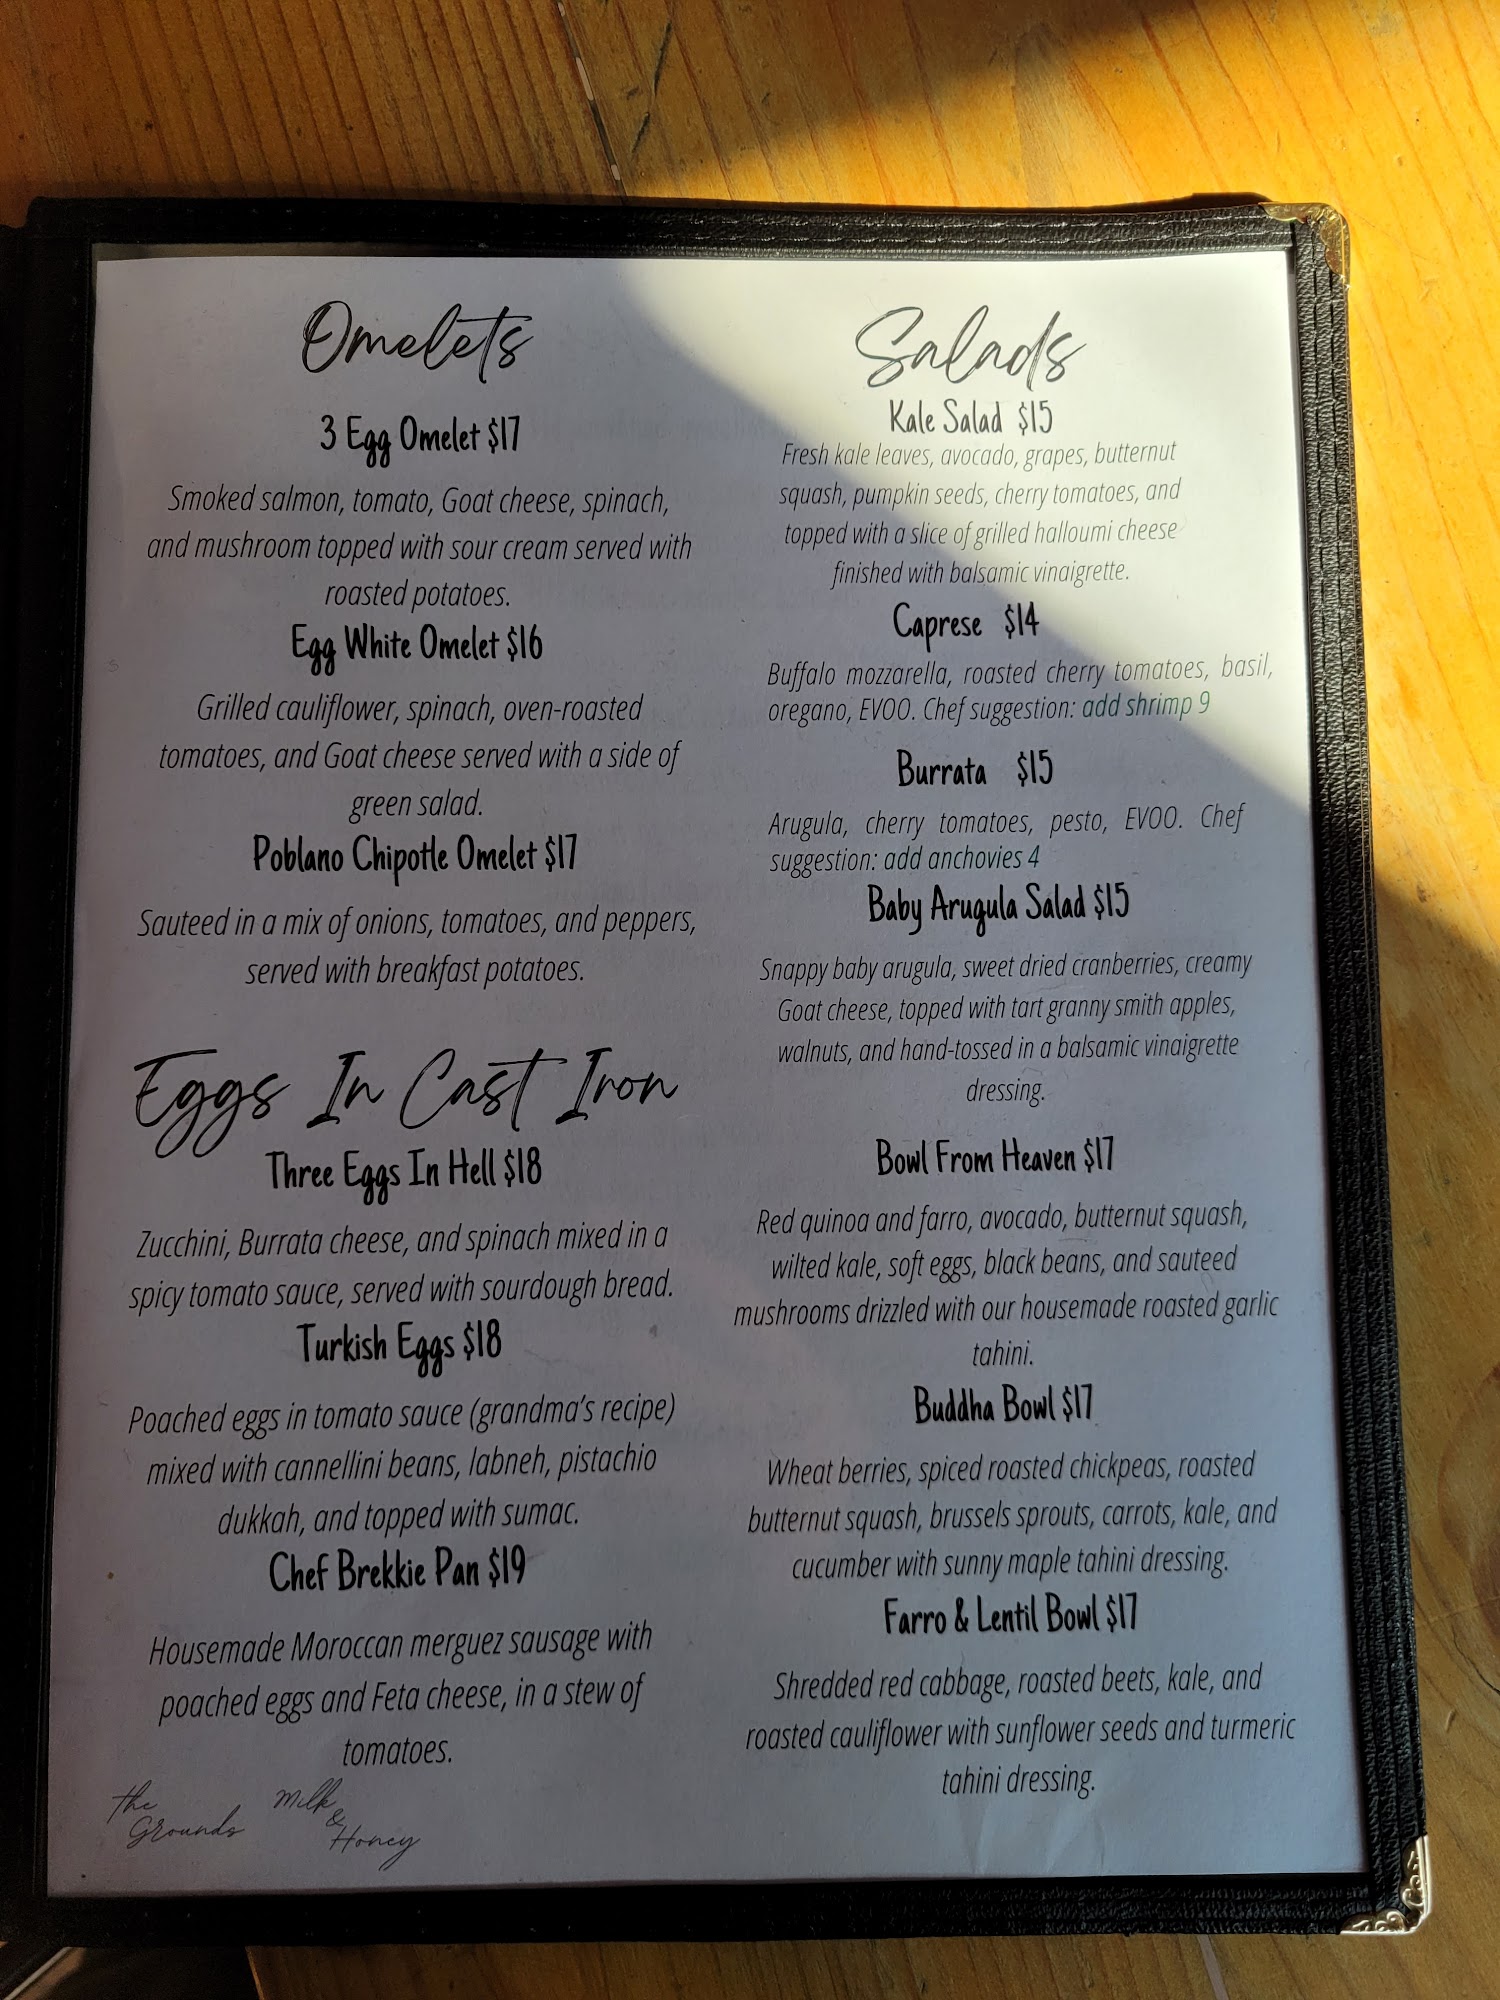 Omelets
3 Egg Omelet $17
Smoked salmon, tomato, Goat cheese, spinach,
and mushroom topped with sour cream served with
roasted potatoes.
Egg White Omelet $16
Grilled cauliflower, spinach, oven-roasted
tomatoes, and Goat cheese served with a side of
green salad.
Poblano Chipotle Omelet $17
Sauteed in a mix of onions, tomatoes, and peppers,
served with breakfast potatoes.
Eggs In Cast Iron
Three Eggs In Hell $18
Zucchini, Burrata cheese, and spinach mixed in a
spicy tomato sauce, served with sourdough bread.
Turkish Eggs $18
Poached eggs in tomato sauce (grandma's recipe)
mixed with cannellini beans, labneh, pistachio
dukkah, and topped with sumac.
Chef Brekkie Pan $19
Housemade Moroccan merguez sausage with
poached eggs and Feta cheese, in a stew of
tomatoes.
the
Grounds
Milk
&
Honey
Salads
Kale Salad $15
Fresh kale leaves, avocado, grapes, butternut
squash, pumpkin seeds, cherry tomatoes, and
topped with a slice of grilled halloumi cheese
finished with balsamic vinaigrette.
Caprese $14
Buffalo mozzarella, roasted cherry tomatoes, basil,
oregano, EVOO. Chef suggestion: add shrimp 9
Burrata $15
Arugula, cherry tomatoes, pesto, EVOO. Chef
suggestion: add anchovies 4
Baby Arugula Salad $15
Snappy baby arugula, sweet dried cranberries, creamy
Goat cheese, topped with tart granny smith apples,
walnuts, and hand-tossed in a balsamic vinaigrette
dressing.
Bowl From Heaven $17
Red quinoa and farro, avocado, butternut squash,
wilted kale, soft eggs, black beans, and sauteed
mushrooms drizzled with our housemade roasted garlic
tahini.
Buddha Bowl $17
Wheat berries, spiced roasted chickpeas, roasted
butternut squash, brussels sprouts, carrots, kale, and
cucumber with sunny maple tahini dressing.
Farro & Lentil Bowl $17
Shredded red cabbage, roasted beets, kale, and
roasted cauliflower with sunflower seeds and turmeric
tahini dressing.